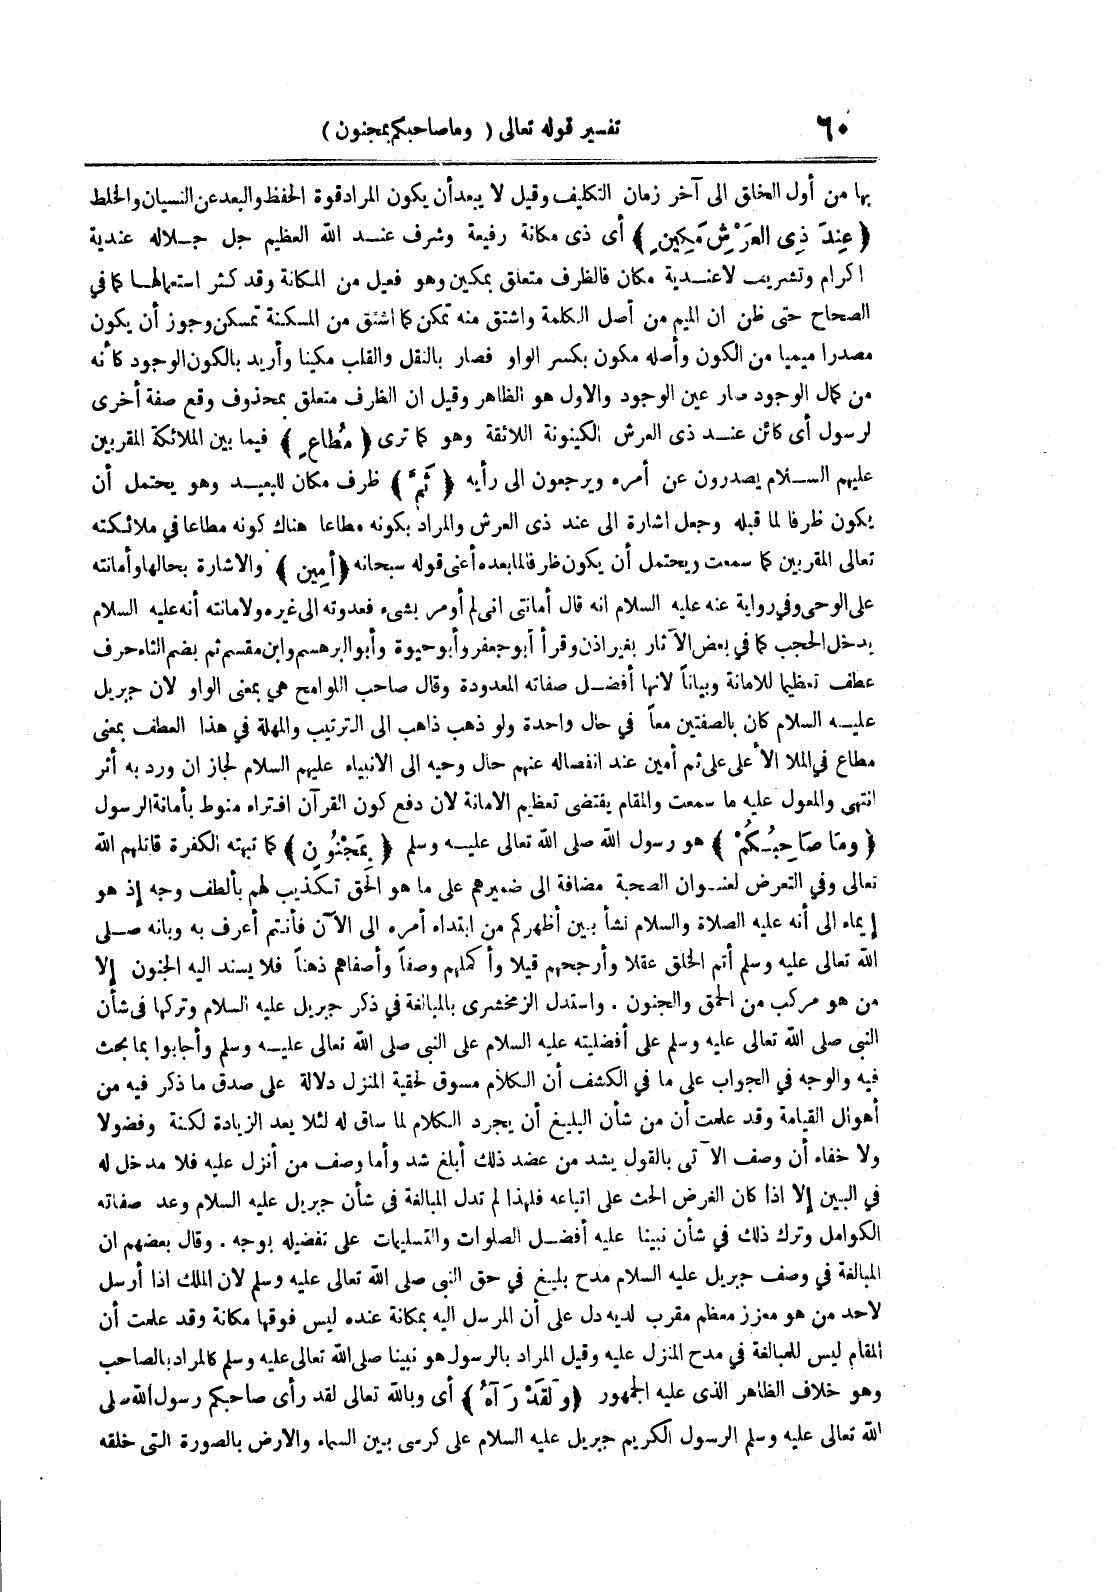 ٦٠ تفسير قوله تعالى ( وما صاحبكم بمجنون )
بها من أول الخلق الى آخر زمان التكليف وقيل لا يبعد أن يكون المراد قوة الحفظ والبعد عن النسيان والخلط
﴿ عِنْدَ ذِى العَرْشِ مَكِينٍ ﴾ أى ذى مكانة رفيعة وشرف عند الله العظيم جل جلاله عندية
اكرام وتشريف لا عندية مكان فالظرف متعلق بمكين وهو فعيل من المكانة وقد كثر استعمالها كما في
الصحاح حتى ظن ان الميم من أصل الكلمة واشتق منه تمكن كما اشتق من المسكنة تمسكن وجوز أن يكون
مصدرا ميميا من الكون وأصله مكون بكسر الواو فصار بالنقل والقلب مكينا وأريد بالكون الوجود كأنه
من كمال الوجود صار عين الوجود والاول هو الظاهر وقيل ان الظرف متعلق بمحذوف وقع صفة أخرى
لرسول أى كائن عند ذى العرش الكينونة اللائقة وهو كما ترى ﴿ مُطَاعٍ ﴾ فيما بين الملائكة المقربين
عليهم السلام يصدرون عن أمره ويرجعون الى رأيه ﴿ ثَمَّ ﴾ ظرف مكان للبعيد وهو يحتمل أن
يكون ظرفا لما قبله وجعل اشارة الى عند ذى العرش والمراد بكونه مطاعا هناك كونه مطاعا في ملائكته
تعالى المقربين كما سمعت ويحتمل أن يكون ظرفا لما بعده أعنى قوله سبحانه ﴿ أَمِين ﴾ والاشارة بحالها وأمانته
على الوحى وفي رواية عنه عليه السلام انه قال أمانتى انى لم أومر بشىء فعدوته الى غيره ولامانته أنه عليه السلام
يدخل الحجب كما في بعض الآثار بغير اذن وقرأ أبو جعفر وأبو حيوة وأبو البرهسم وابن مقسم ثم بضم الثاء حرف
عطف تعظيما للامانة وبياناً لانها أفضل صفاته المعدودة وقال صاحب اللوامح هي بمعنى الواو لان جبريل
عليه السلام كان بالصفتين معاً في حال واحدة ولو ذهب ذاهب الى الترتيب والمهلة في هذا العطف بمعنى
مطاع في الملا الأعلى على ثم أمين عند انفصاله عنهم حال وحيه الى الانبياء عليهم السلام لجاز ان ورد به أثر
انتهى والمعول عليه ما سمعت والمقام يقتضى تعظيم الامانة لان دفع كون القرآن افتراء منوط بأمانة الرسول
﴿ ومَا صَاحِبُكُمْ ﴾ هو رسول الله صلى الله تعالى عليه وسلم ﴿ بِمَجْنُونٍ ﴾ كما تبهته الكفرة قاتلهم الله
تعالى وفي التعرض لعنوان الصحبة مضافة الى ضميرهم على ما هو الحق تكذيب لهم بألطف وجه إذ هو
إيماء الى أنه عليه الصلاة والسلام نشأ بين أظهركم من ابتداء أمره الى الآن فأنتم أعرف به وبانه صلى
الله تعالى عليه وسلم أتم الخلق عقلا وأرجحهم قيلا وأكملهم وصفاً وأصفاهم ذهناً فلا يسند اليه الجنون إلا
من هو مركب من الحمق والجنون . واستدل الزمخشرى بالمبالغة في ذكر جبريل عليه السلام وتركها فى شأن
النبى صلى الله تعالى عليه وسلم على أفضليته عليه السلام على النبى صلى الله تعالى عليه وسلم وأجابوا بما بحث
فيه والوجه في الجواب على ما في الكشف أن الكلام مسوق لحقية المنزل دلالة على صدق ما ذكر فيه من
أهوال القيامة وقد علمت أن من شأن البليغ أن يجرد الكلام لما ساق له لئلا يعد الزيادة لكنة وفضولا
ولا خفاء أن وصف الآتى بالقول يشد من عضد ذلك أبلغ شد وأما وصف من أنزل عليه فلا مدخل له
في البين إلا اذا كان الغرض الحث على اتباعه فلهذا لم تدل المبالغة فى شأن جبريل عليه السلام وعد صفاته
الكوامل وترك ذلك في شأن نبينا عليه أفضل الصلوات والتسليمات على تفضيله بوجه . وقال بعضهم ان
المبالغة في وصف جبريل عليه السلام مدح بليغ في حق النبى صلى الله تعالى عليه وسلم لان الملك اذا أرسل
لاحد من هو معزز معظم مقرب لديه دل على أن المرسل اليه بمكانة عنده ليس فوقها مكانة وقد علمت أن
المقام ليس للمبالغة في مدح المنزل عليه وقيل المراد بالرسول هو نبينا صلى الله تعالى عليه وسلم كالمراد بالصاحب
وهو خلاف الظاهر الذى عليه الجمهور ﴿ وَلَقَدْ رَآهُ ﴾ أى وبالله تعالى لقد رأى صاحبكم رسول الله صلى
الله تعالى عليه وسلم الرسول الكريم جبريل عليه السلام على كرسى بين السماء والارض بالصورة التى خلقه